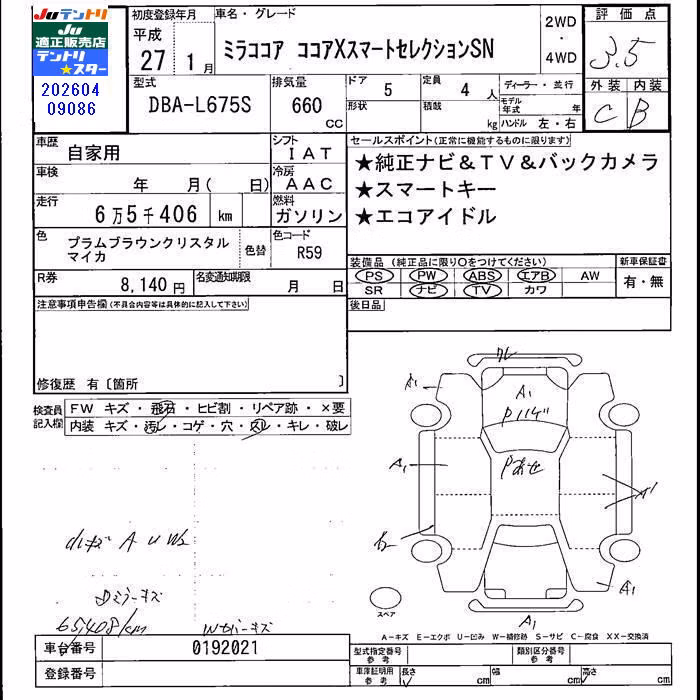 Juテントリ
Ju
適正販売店
テントリ
★スター
202604
09086
初度登録年月
平成
27 1月
車名・グレード
ミラココア ココアXスマートセレクションSN
2WD
・
4WD
評価点
3.5
外装 内装
C B
型式
DBA-L675S
排気量
660
CC
ドア 5
形状
定員 4 人
積載 kg
ディーラー・並行
モデル年式 年
ハンドル 左・右
車歴 自家用
シフト IAT
車検 年 月( 日)
冷房 AAC
走行 6万5千406 km
燃料 ガソリン
色 プラムブラウンクリスタル
マイカ
色替
色コード R59
R券 8,140円
名変通知期限 月 日
セールスポイント(正常に機能するものに限ります)
★純正ナビ&TV&バックカメラ
★スマートキー
★エコアイドル
装備品 (純正品に限り○をつけてください)
新車保証書
PS PW ABS エアB AW
SR ナビ TV カワ
有・無
後日品
注意事項申告欄(不具合内容等は具体的に記入して下さい)
修復歴 有〔箇所 〕
検査員
記入欄
FW キズ・飛石・ヒビ割・リペア跡・×要
内装 キズ・汚レ・コゲ・穴・スレ・キレ・破レ
A1
A1
A1
A1
A1
A U W2
Dミラーキズ
65,408/km
スペア
A-キズ E-エクボ U-凹み W-補修跡 S-サビ C-腐食 XX-交換済
車台番号 0192021
登録番号
型式指定番号
参考
類別区分番号
参考
車庫証明用
参考
長さ cm
幅 cm
高さ cm